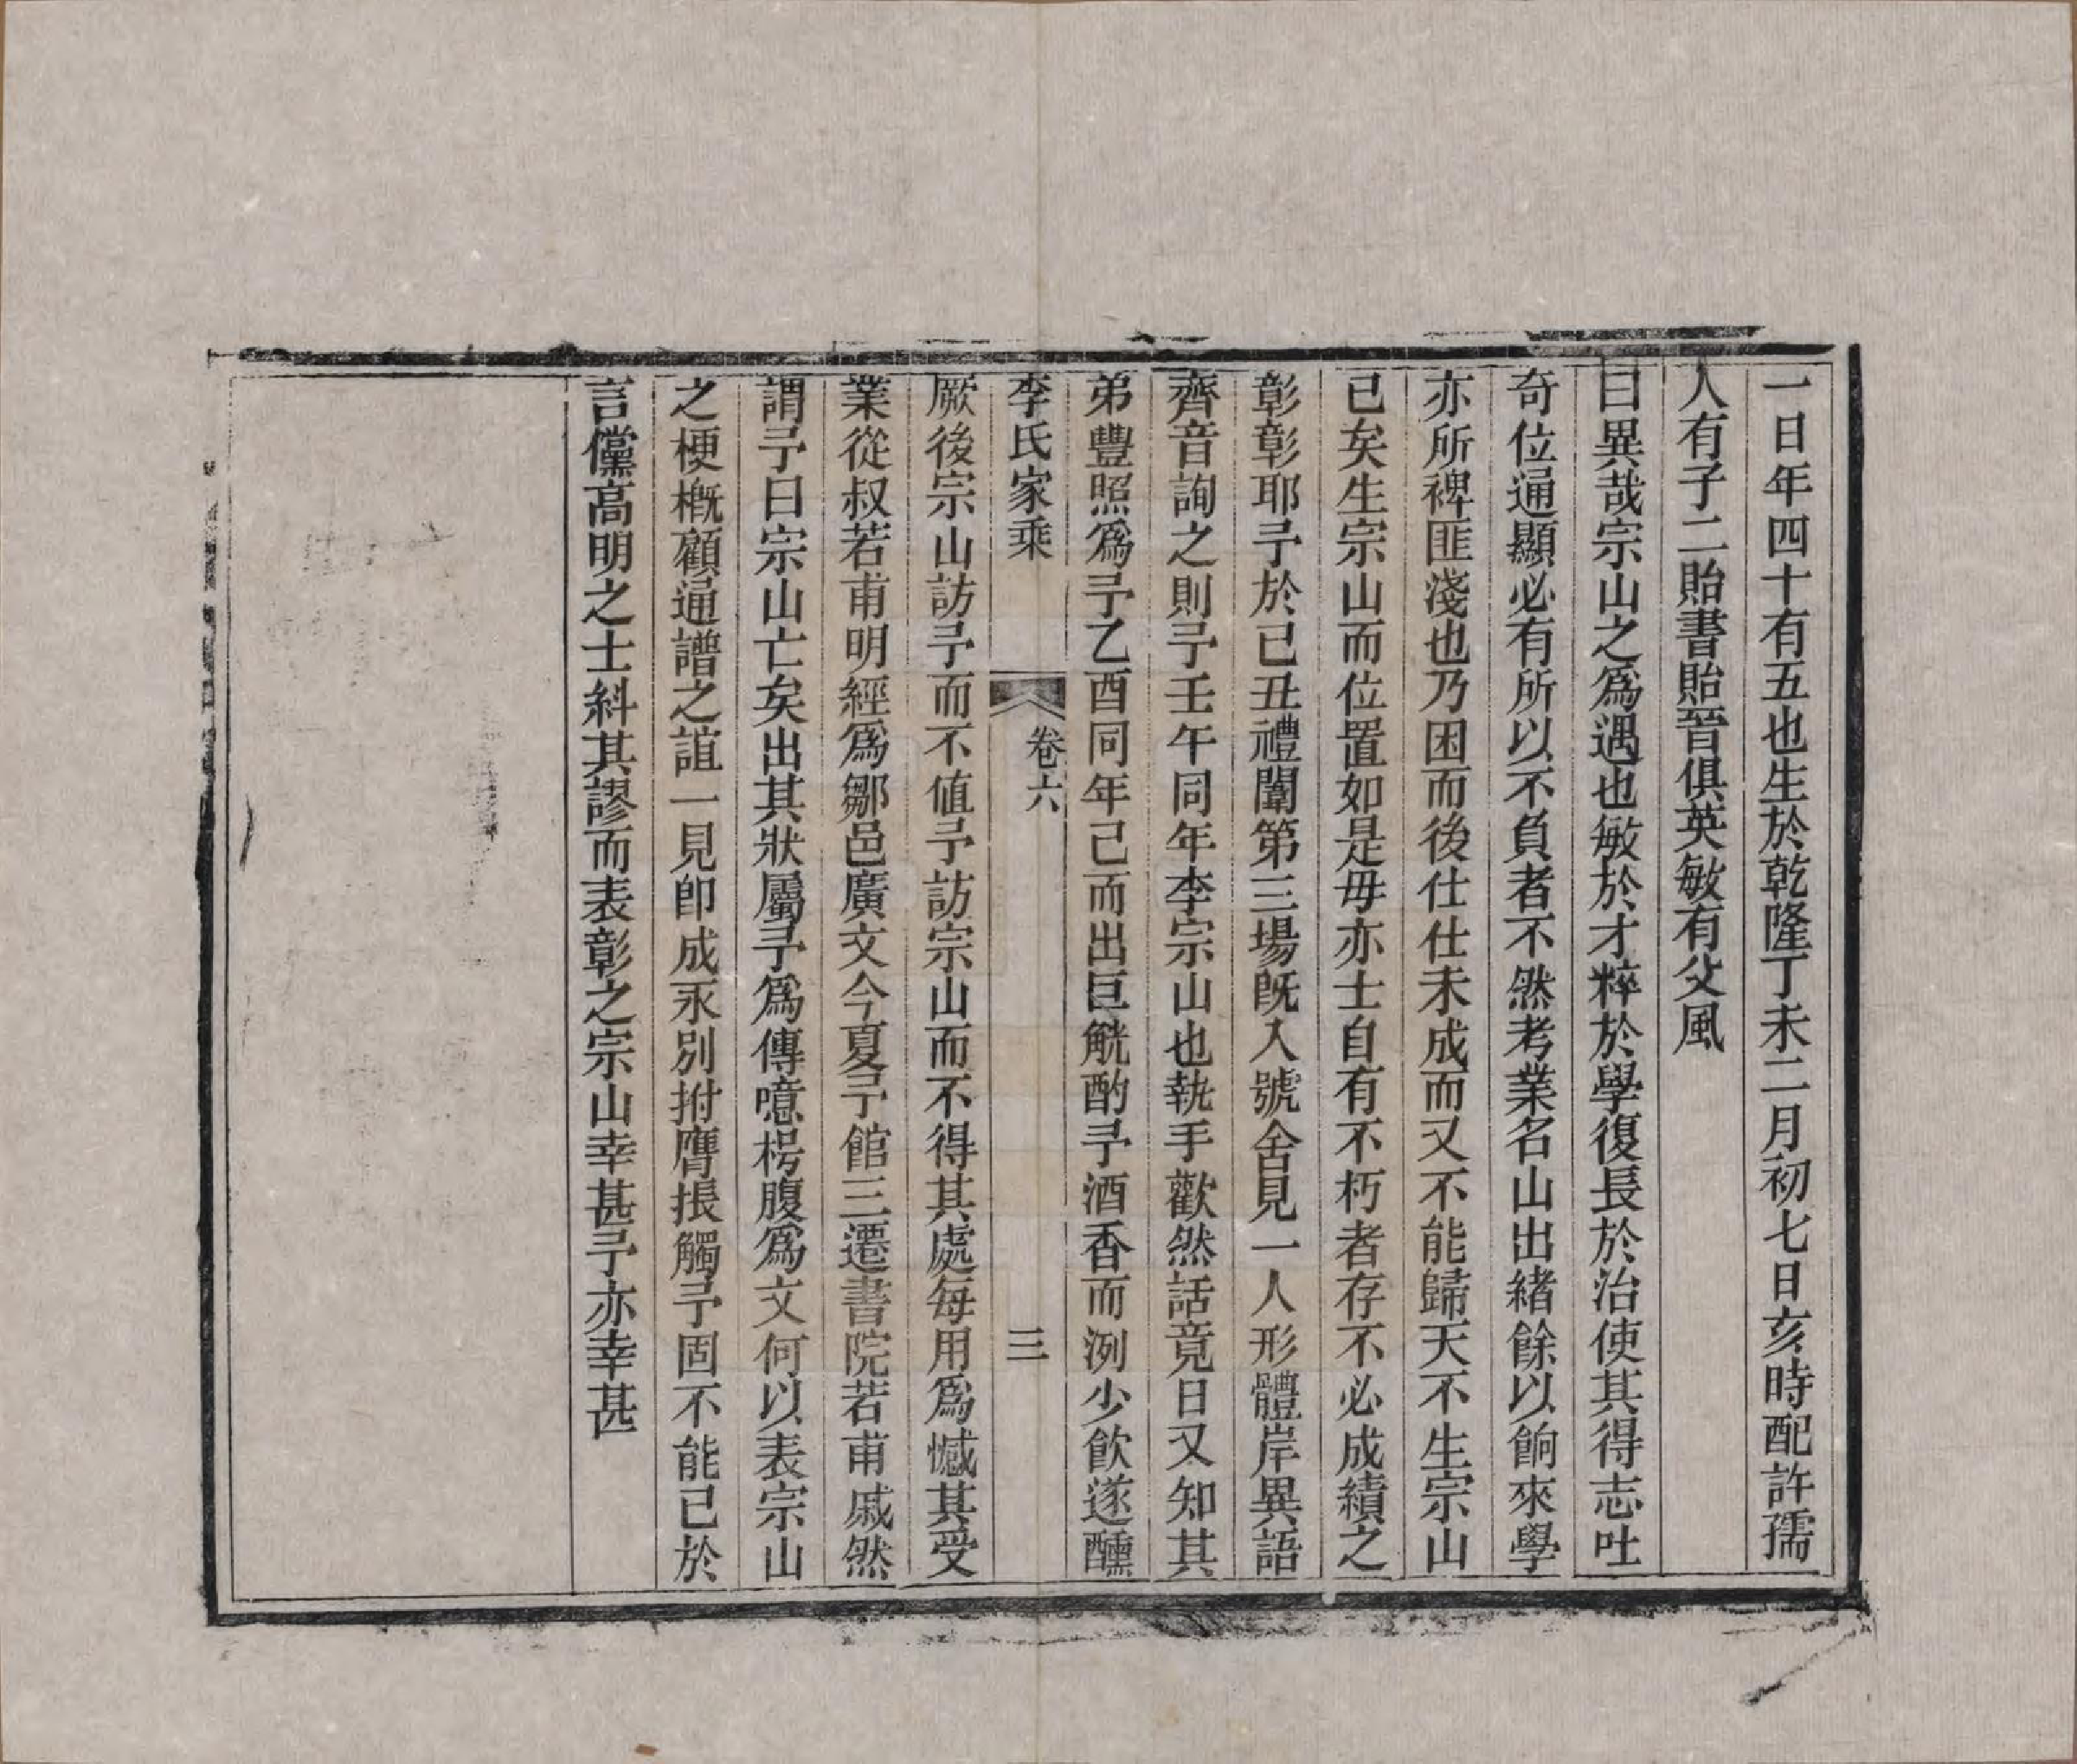 一日年四十有五也生於乾隆丁未二月初七日亥時配許孺
人有子二貽書貽晉俱英敏有父風
曰異哉宗山之爲遇也敏於才粹於學復長於治使其得志吐
奇位通顯必有所以不負者不然考業名山出緒餘以餉來學
亦所裨匪淺也乃困而後仕仕未成而又不能歸天不生宗山
已矣生宗山而位置如是毋亦士自有不朽者存不必成績之
彰彰耶予於己丑禮闈第三場旣入號舍見一人形體岸異語
齊音詢之則予壬午同年李宗山也執手歡然話竟日又知其
弟豐照爲予乙酉同年已而出巨觥酌予酒香而洌少飲遂醺
李氏家乘 卷六 三
厥後宗山訪予而不值予訪宗山而不得其處每用爲憾其受
業從叔若甫明經爲鄒邑廣文今夏予館三遷書院若甫戚然
謂予曰宗山亡矣出其狀屬予爲傳噫枵腹爲文何以表宗山
之梗概顧通譜之誼一見卽成永別拊膺掁觸予固不能已於
言儻高明之士糾其謬而表彰之宗山幸甚予亦幸甚